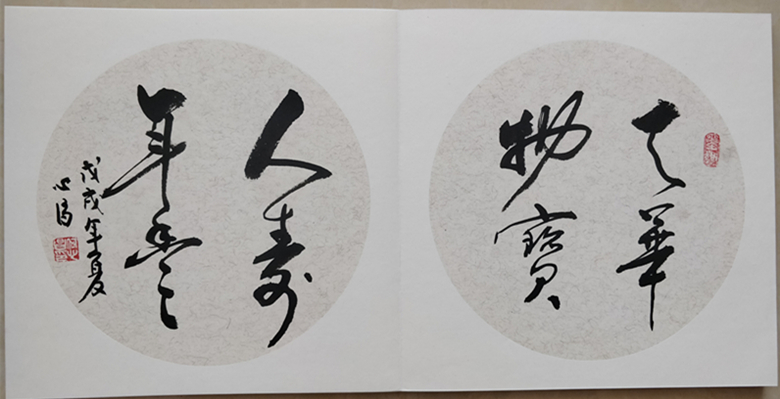 天華
物寶
人壽
年豐
戊戌年夏